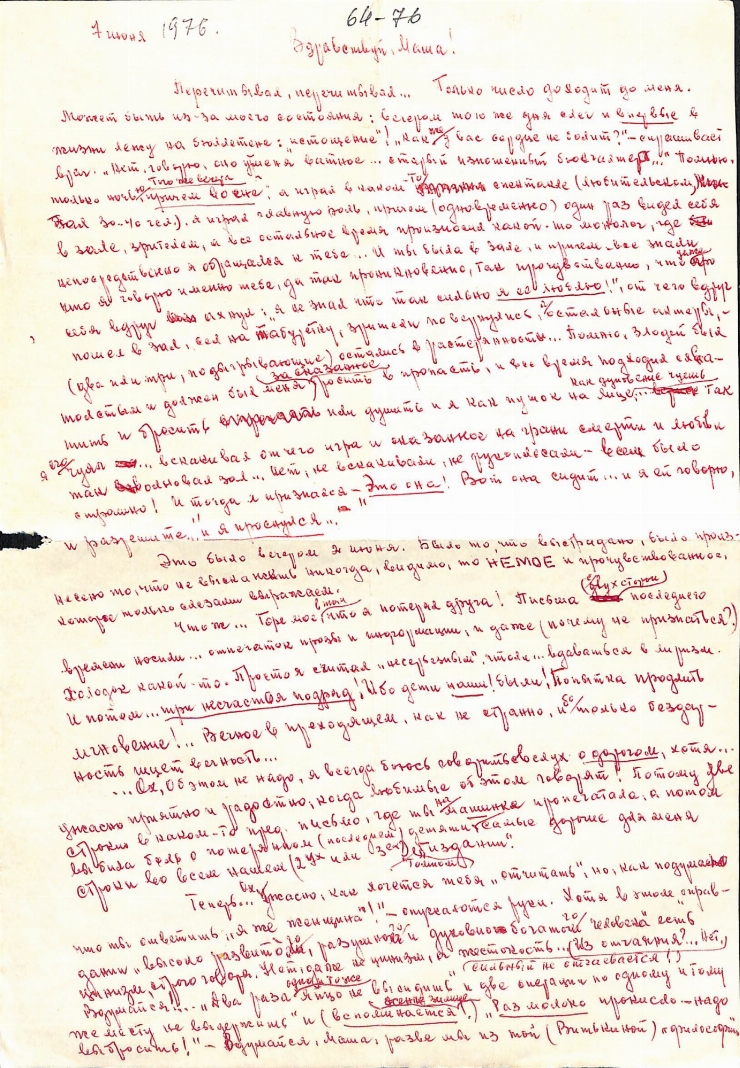 7 июня 1976.
64-76
Здравствуй, Маша!
Перечитывал, перечитывал... Только число доходит до меня.
Может быть из-за моего состояния: вечером того же дня слег и впервые в
жизни лежу на бюллетене: "истощение"! "Как же у вас сердце не болит?" - спрашивает
врач. "Нет, говорю, оно у меня ватное... старый изношенный бюхгалтер..." Помню,
только ночью причем во сне; а играл в каком-то спектакле (любительском,
30-40 чел), я играл главную роль, причем (одновременно) один раз видел себя
в зале, зрителем, а все остальное время произносил какой-то монолог, где
непосредственно я обращался к тебе... И ты была в зале, и причем - все знали
что я говорю именно тебе, да так проникновенно, так прочувственно, что даже
себя вдруг : "я не знал что так сильно я ее люблю!", от чего вдруг
пошел в зал, сел на табуретку, зрители повернулись, и остальные актеры, -
(два или три, подыгрывающие) остались в растерянности... Помню, злодей был
толстым и должен был меня за сказанное бросить в пропасть, и все время подходил
и бросить или душить и я как пушок на лице... как дуновение чуешь так
я его чуял ... вскакивал от чего игра и сказанное на грани смерти и любви
так волновал зал... Нет, не вскакивали, не рукоплескали - всем было
страшно! И тогда я признался - Это она! Вот она сидит... и я ей говорю,
и разрешите..." и я проснулся..."
Это было вечером 2 июня. Было то, что выстрадано, было произ-
несено то, что не выскажешь никогда, видимо, то НЕМОЕ и прочувствованное,
которое только слезами выражаем.
Что ж... Горе мое в том что я потерял друга! Письма с двух сторон последнего
времени носили... отпечаток прозы и информации, и даже (почему не признаться?)
холодок какой-то. Просто я считал "несерьезным", что ли... вдаваться в лиризм.
И потом... три несчастья подряд! Ибо дети наши! были! Попытка продлить
мгновение!... Вечное в преходящем, как не странно, ибо только бездар-
ность ищет вечность...
... Ох, Об этом не надо, я всегда боюсь говорить вслух о дорогом, хотя...
ужасно приятно и радостно, когда любимые об этом говорят! Потому две
строки в каком-то пред. письмо, где ты на машинке пропечатала, а потом
выбила боль о потерянном (последнем) детяти "самые дорогие для меня
строки во всем нашем (2ух или 3ех) томном издании".
Теперь... Ох ужасно, как хочется тебя "отчитать", но, как подумаю
что ты ответить "я же женщина"! - опускаются руки. Хотя в этом "оправ-
дании" высоко развитого, разумного и духовно богатого человека есть
цинизм, строго говоря. Нет, даже не цинизм, а жестокость... (Из отчаяния?... Нет,
сильный не отчаивается!)
Вдумайся:... "Два раза одно и то же яйцо не высидишь" и две операции по одному и тому
же месту не выдержишь" и (вспоминается!) "Раз молоко прокисло - надо
выбросить!" - Вдумайся, Маша, разве мы из той (Витькиной) "философии"